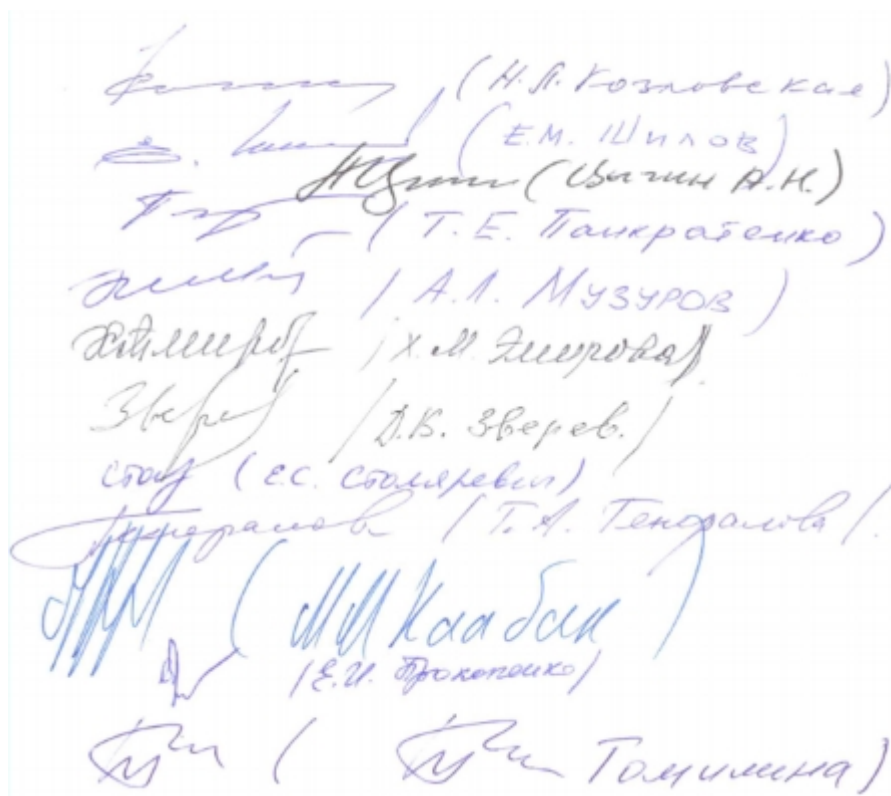 (Н.Л. Козловская)
(Е.М. Шилов)
(Цыгин А.Н.)
(Т.Е. Панкратенко)
/ А.Л. Музуров /
Эмиров / Х.М. Эмирова /
Зверев / Д.В. Зверев. /
Стол (Е.С. Столяревич)
Генералова / Г.А. Генералова /.
(ММ Каабак)
/ Е.И. Прокопенко /
( Томилина)